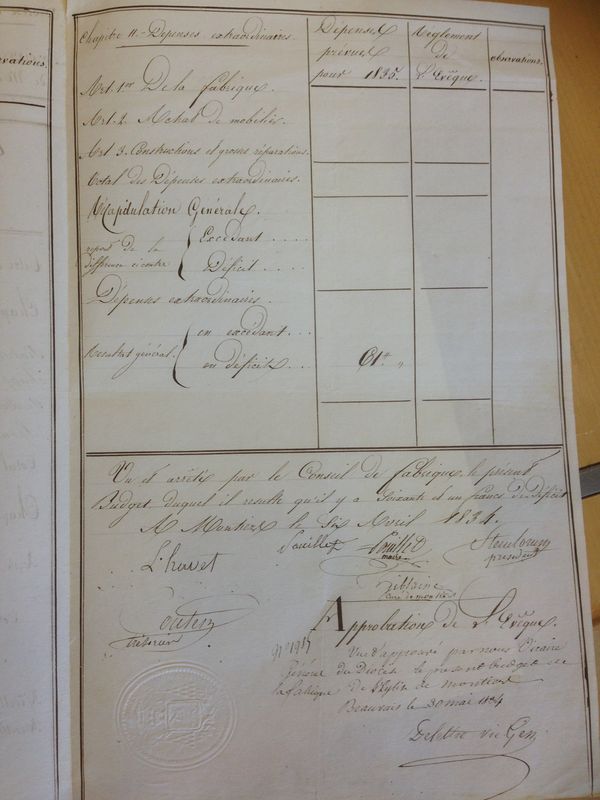 Chapitre II. Dépenses extraordinaires.
Dépenses prévues pour 1835.
Règlement de l'Evêque.
observations.
Art. 1er De la fabrique.
Art. 2. Achat de mobilier.
Art. 3. Constructions et grosses réparations.
Total des Dépenses extraordinaires.
Récapitulation Générale.
report de la différence ci contre
Excédant . . . .
Déficit . . . .
Dépenses extraordinaires.
Résultat général.
en excédant. . .
en déficit. . . 61 "
Vu et arrêté par le Conseil de fabrique, le présent
Budget duquel il resulte qu'il y a Soixante et un francs de Déficit
A le Six Avril 1834.
maire
president
curé de
trésorier
Approbation de l'Evêque.
Vu et approuvé par nous Vicaire
Général du Diocèse le présent budget de
la fabrique de l'Eglise de
Beauvais le 30 mai 1834
vic Gen